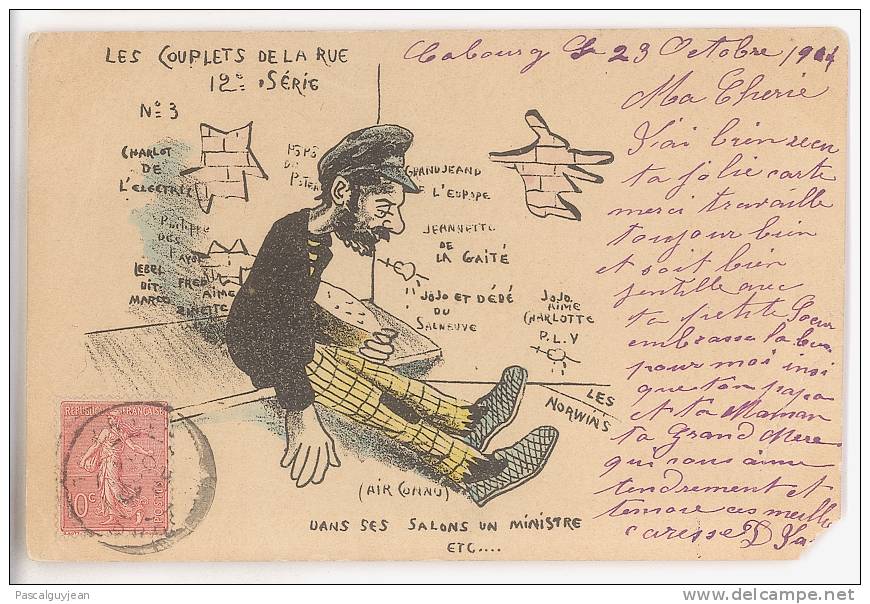 LES COUPLETS DE LA RUE
12e SÉRIE
No 3
CHARLOT
DE
L'ELECTRIC
PHILIPPE
DES
FAYOTS
LEBEL
DIT
MARCO
FRED
AIME
GRANDJEAND
DE L'EUROPE
JEANNETTE
DE
LA GAITÉ
JOJO ET DÉDÉ
DU
SALNEUVE
JOJO
AIME
CHARLOTTE
P.L.V
LES
NORWINS
(AIR CONNU)
DANS SES SALONS UN MINISTRE
ETC....
RÉPUBLIQUE FRANÇAISE
10c
Cabourg le 23 Octobre 1904
Ma Cherie
J'ai bien recu
ta jolie carte
merci travaille
toujour bien
et soit bien
jentille avec
ta petite Soeur
embrassa la bien
pour moi insi
que ton papa
et ta Maman
ta Grand Mere
qui vous aime
tendrement et
tenvoie ces meille
caresse
Pascalguyjean
www.delcampe.net